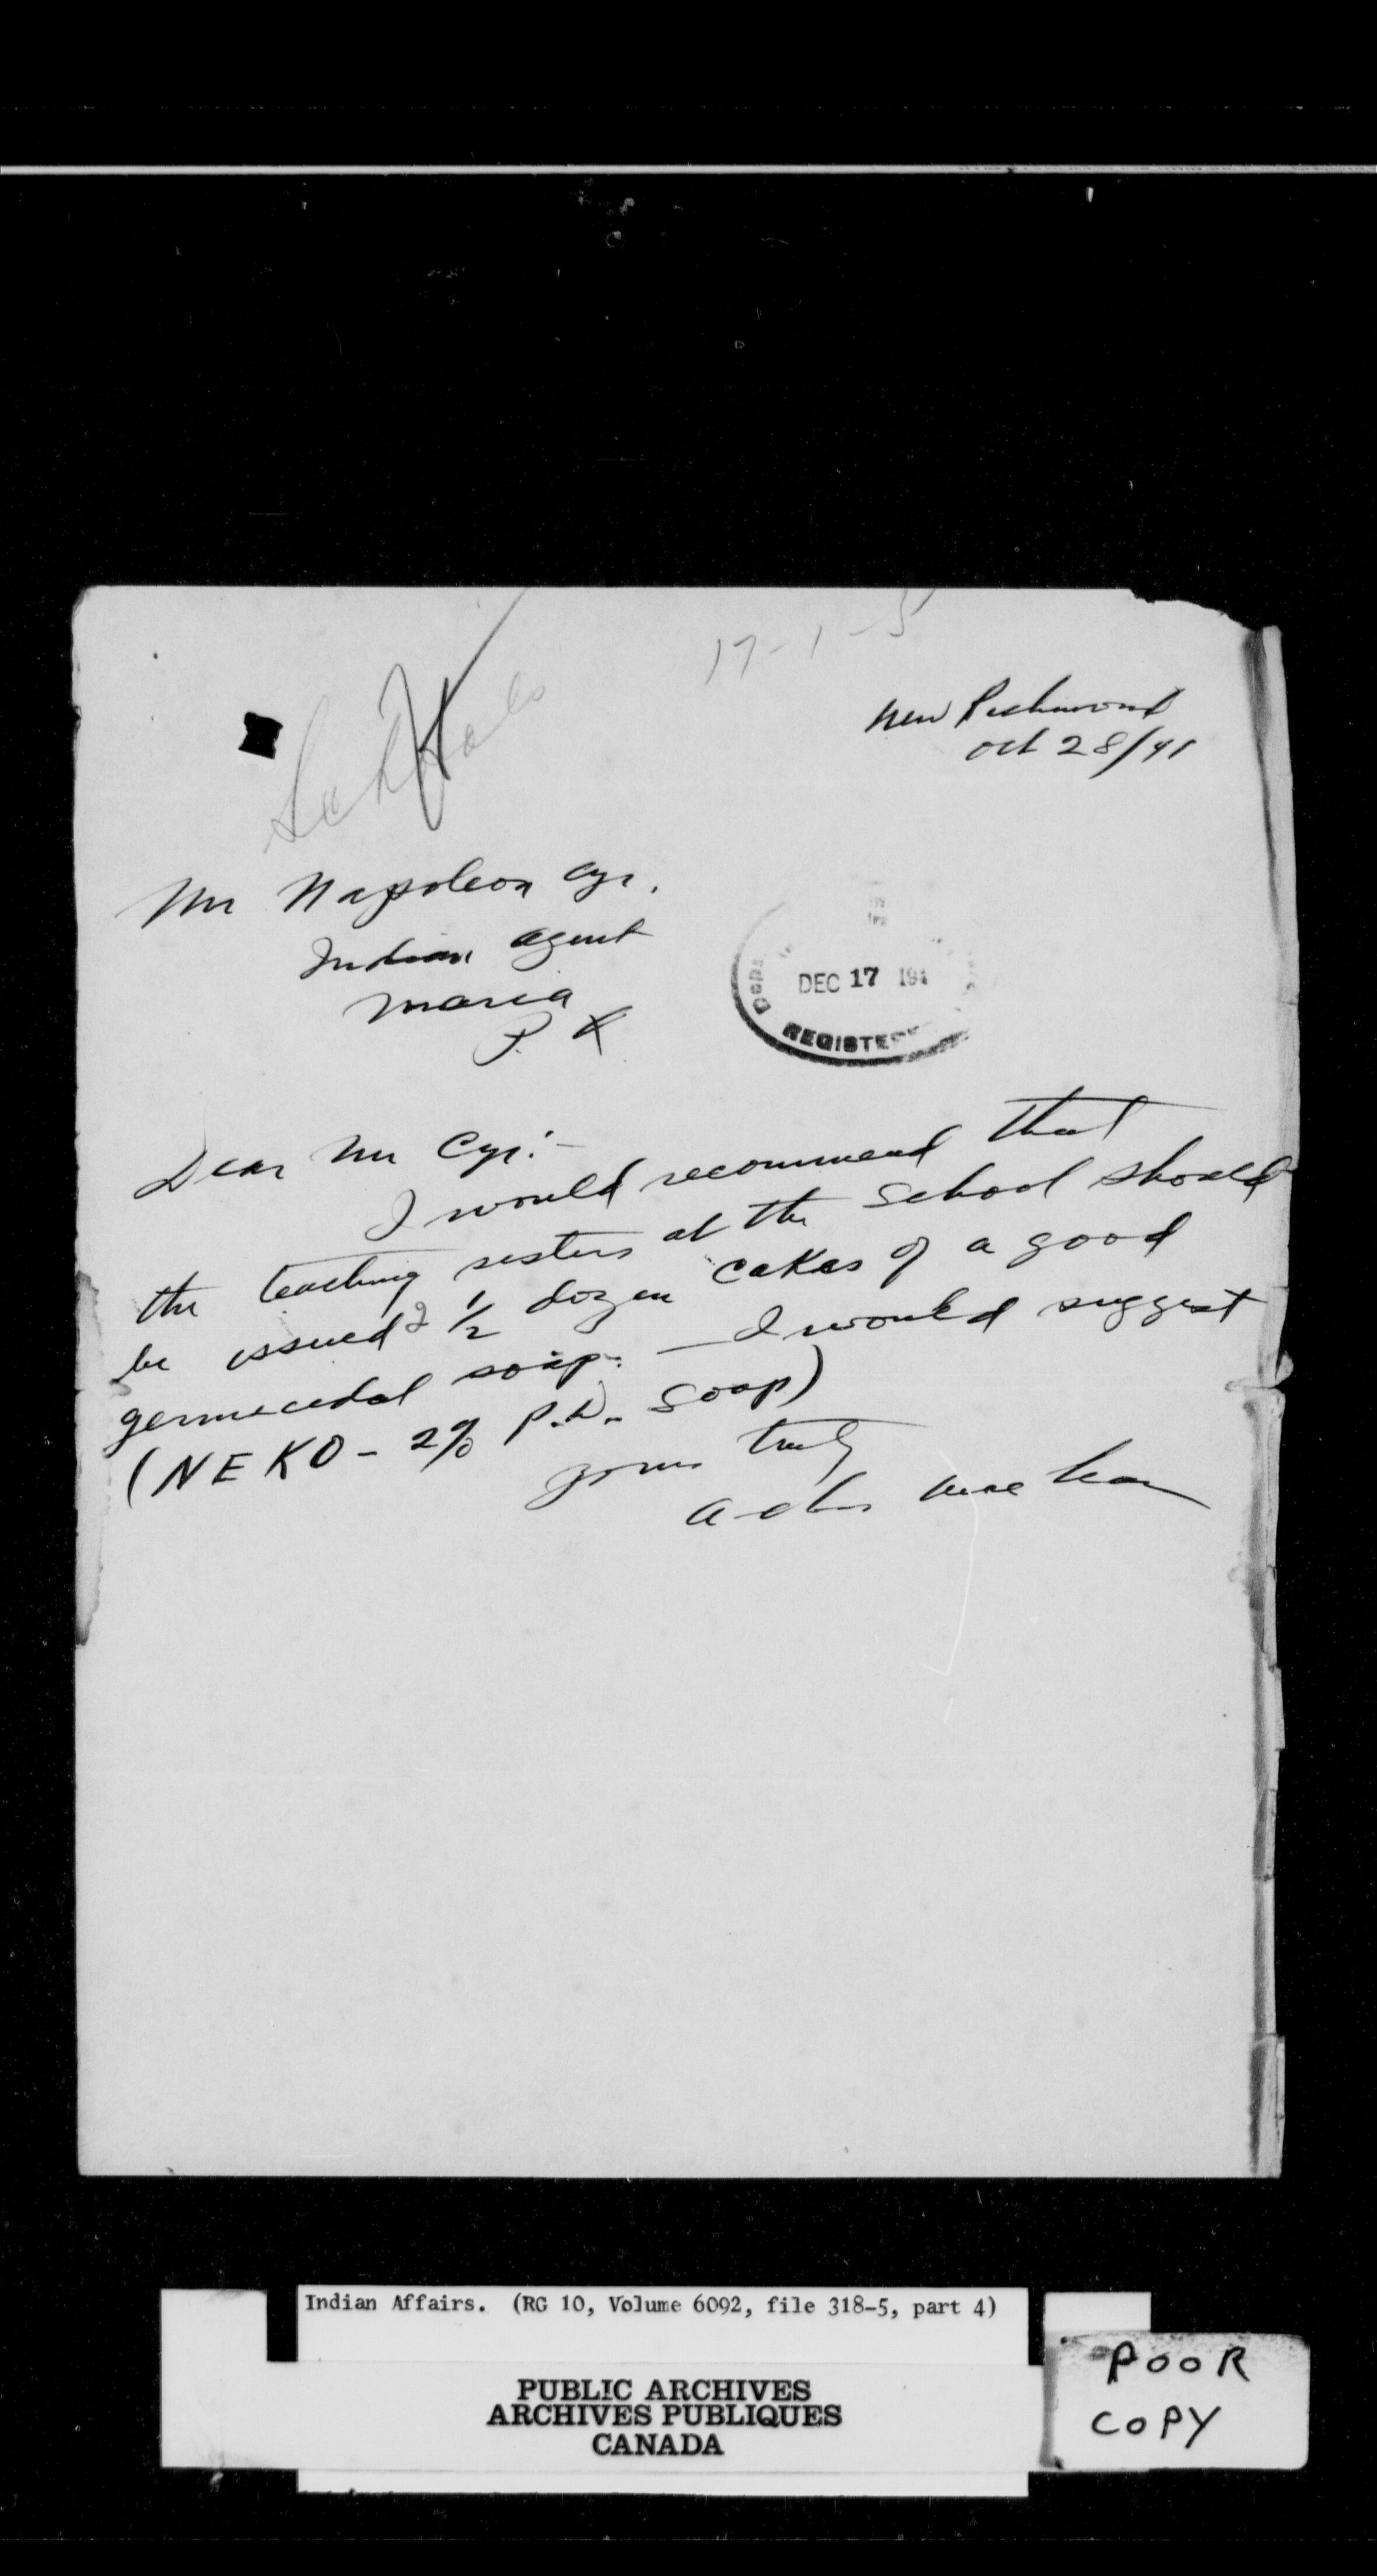 17-1-5
New Richmond
Oct 28/41
Mr Napoleon Cyr.
Indian Agent
Maria
P. Q
DEC 17 194
REGISTE
Dear Mr Cyr:-
I would recommend that
the teaching sisters at the School should
be issued 2 1/2 dozen cakes of a good
germicidal soap. — I would suggest
(NEKO - 2% P.D. Soap)
yours truly
Indian Affairs. (RG 10, Volume 6092, file 318-5, part 4)
PUBLIC ARCHIVES
ARCHIVES PUBLIQUES
CANADA
POOR
COPY